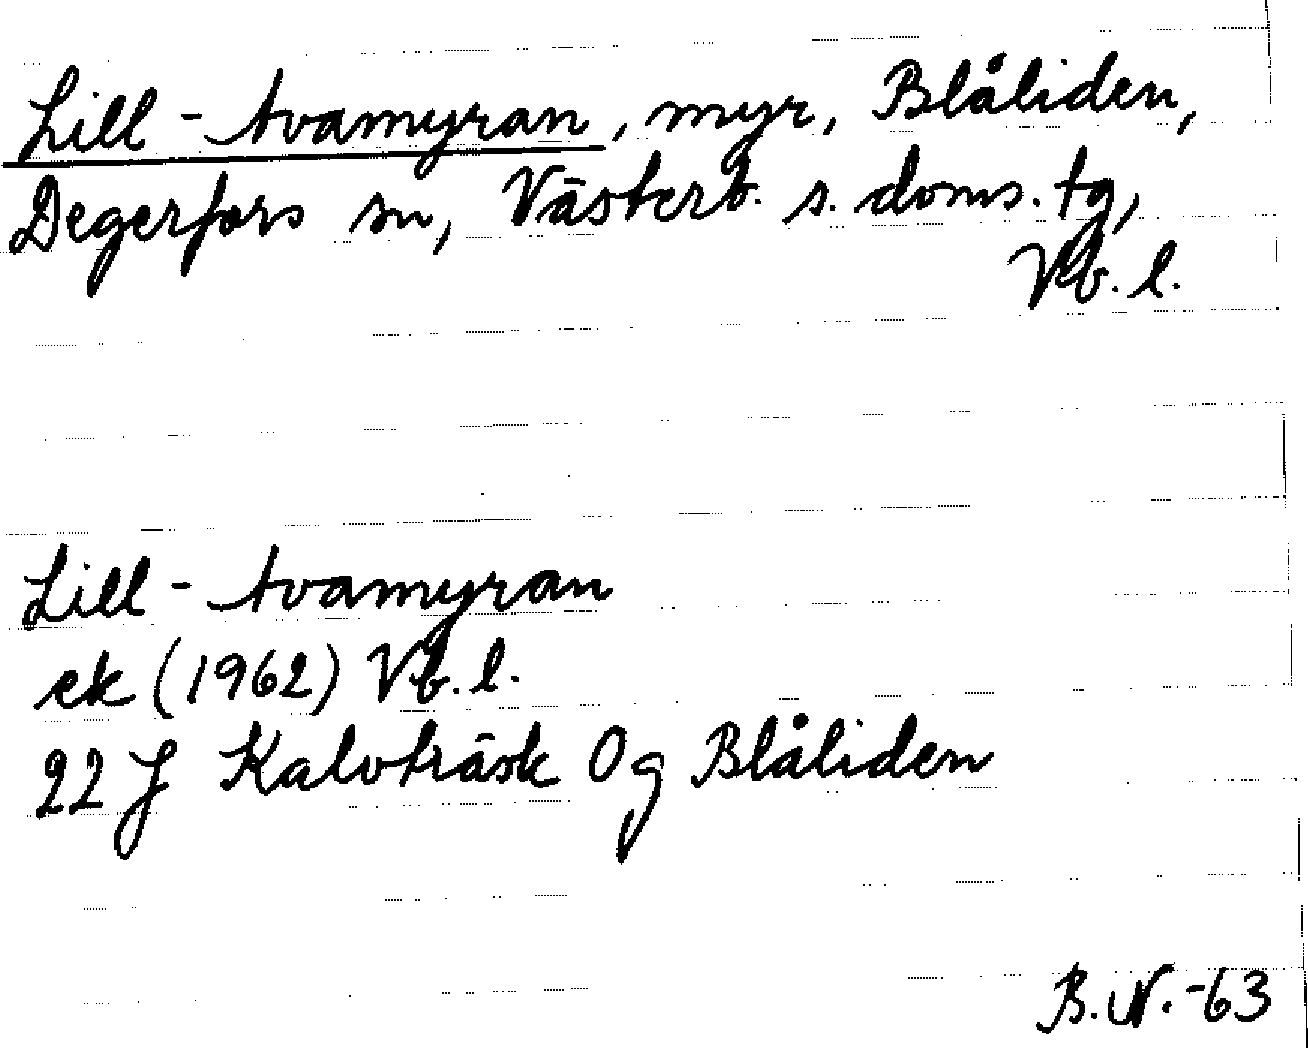 Lill-Avamyran, myr, Blåliden,
Degerfors sn, Västerb. s. doms. tg,
Vb. l.
Lill-Avamyran
ek (1962) Vb. l.
22 J Kalvträsk Og Blåliden
B. N. -63